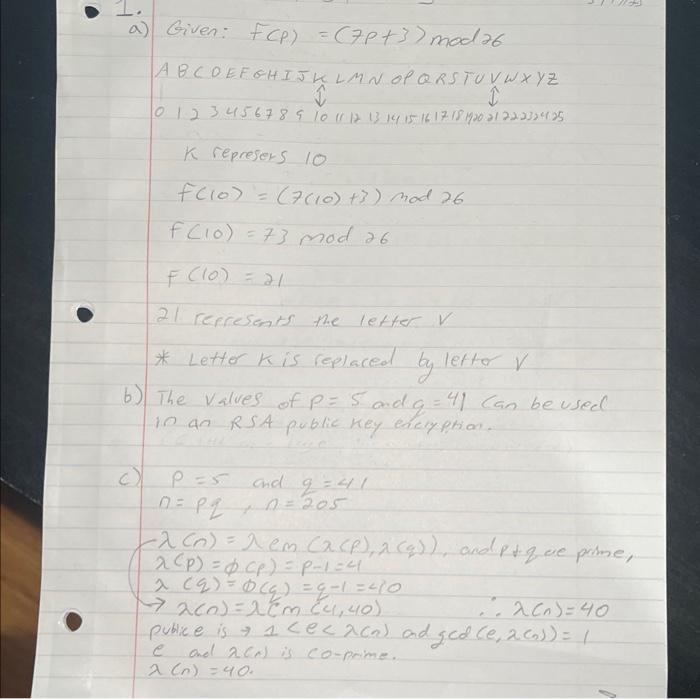 1.
a) Given: F(p) = (7p+3) mod 26
A B C D E F G H I J K L M N O P Q R S T U V W X Y Z
0 1 2 3 4 5 6 7 8 9 10 11 12 13 14 15 16 17 18 19 20 21 22 23 24 25
K represers 10
F(10) = (7(10)+3) mod 26
F(10) = 73 mod 26
F(10) = 21
21 represents the letter V
* Letter K is replaced by letter V
b) The values of p = 5 and q = 41 can be used
in an RSA public key encryption.
c) p = 5 and q = 41
n = pq, n = 205
λ(n) = λcm(λ(p), λ(q)), and p + q are prime,
λ(p) = φ(p) = p-1 = 4
λ(q) = φ(q) = q-1 = 40
→ λ(n) = λcm(4,40) ∴ λ(n) = 40
public e is → 1 < e < λ(n) and gcd(e, λ(n)) = 1
e and λ(n) is co-prime.
λ(n) = 40.